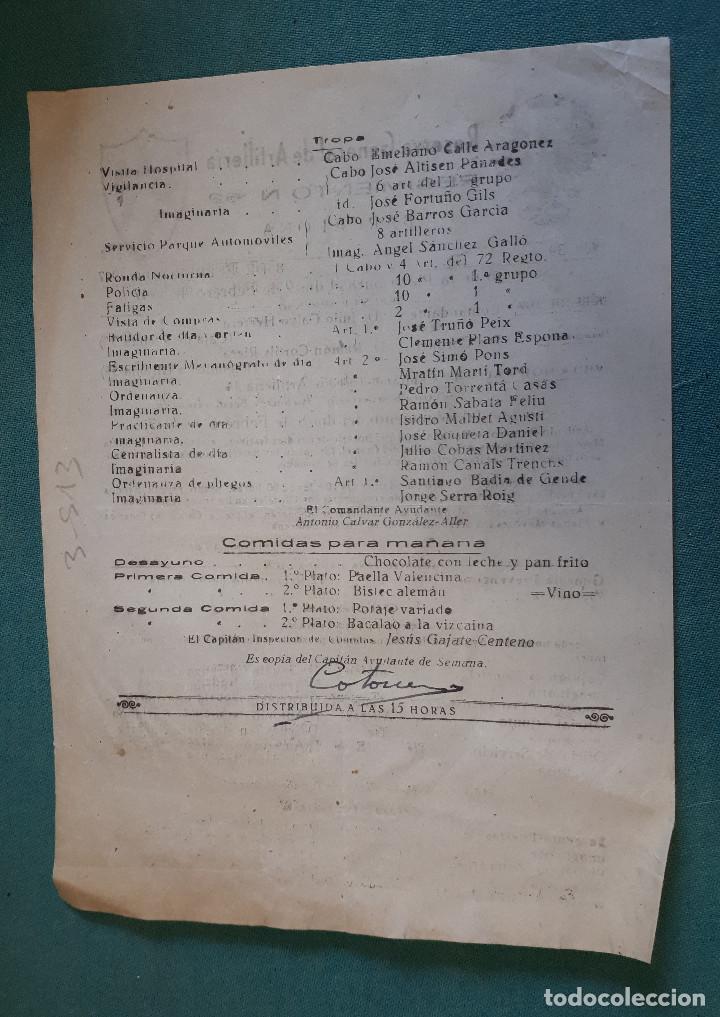 Tropa
Visita Hospital . . . . Cabo Emeliano Calle Aragonez
Vigilancia. . . . . Cabo José Altisen Panades
6 art. del 1º grupo
Imaginaria . . . id. José Fortuño Gils
Servicio Parque Automoviles Cabo José Barros Garcia
8 artilleros
Imag. Angel Sánchez Galló
Ronda Nocturna. . . . 1 Cabo y 4 Art. del 72 Regto.
Policia . . . . 10 " " 1.ª grupo
Fatigas . . . . 10 " 1 "
Vista de Compras . . . 2 " 1 "
de dia Art. 1.º José Truñó Peix
Imaginaria. . . . " Clemente Plans Espona
Escribiente Mecanógrafo de dia Art. 2º José Simó Pons
Imaginaria. . . . " Mratin Marti Tord
Ordenanza. . . . " Pedro Torrentá Casas
Imaginaria. . . . " Ramón Sabata Feliu
Practicante de dia . . " Isidro Malbet Agusti
Imaginaria. . . . " José Roqueta Daniel
Centralista de dia . . " Julio Cobas Martinez
Imaginaria . . . " Ramón Canals Trenchs
Ordenanza de pliegos . . Art 1.º Santiago Badia de Gende
Imaginaria . . . " Jorge Serra Roig
El Comandante Ayudante
Antonio Calvar González-Aller
Comidas para mañana
Desayuno . . . . . . Chocolate con leche y pan frito
Primera Comida. . 1.º Plato: Paella Valencina
" " . 2.º Plato: Bistec alemán =Vino=
Segunda Comida 1.º Plato: Potaje variado
" " . 2.º Plato: Bacalao a la vizcaina
El Capitán Inspector de Comidas, Jesús Gajate Centeno
Es copia del Capitán Ayudante de Semana.
DISTRIBUIDA A LAS 15 HORAS
3-913
todocoleccion